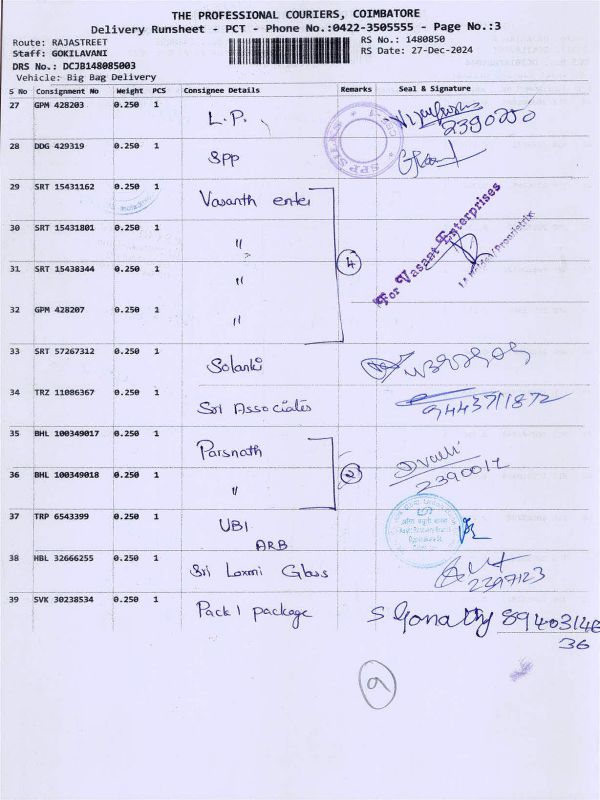 THE PROFESSIONAL COURIERS, COIMBATORE
Delivery Runsheet - PCT - Phone No.:0422-3505555 - Page No.:3
Route: RAJASTREET
RS No.: 1480850
Staff: GOKILAVANI
RS Date: 27-Dec-2024
DRS No.: DCJB148085003
Vehicle: Big Bag Delivery
S No Consignment No Weight PCS Consignee Details Remarks Seal & Signature
27 GPM 428203 0.250 1 L.P. 2390250
28 DDG 429319 0.250 1 SPP
29 SRT 15431162 0.250 1 Vasanth enter
For Vasant Enterprises
30 SRT 15431801 0.250 1 "
4
31 SRT 15438344 0.250 1 "
32 GPM 428207 0.250 1 "
33 SRT 57267312 0.250 1 Solanki
34 TRZ 11086367 0.250 1 Sri Associates 9443711872
35 BHL 100349017 0.250 1 Parsnath
2
36 BHL 100349018 0.250 1 " 2390017
37 TRP 6543399 0.250 1 UBI
ARB
38 HBL 32666255 0.250 1 Sri Laxmi Glass 2397123
39 SVK 30238534 0.250 1 Pack 1 package 89403146
36
9